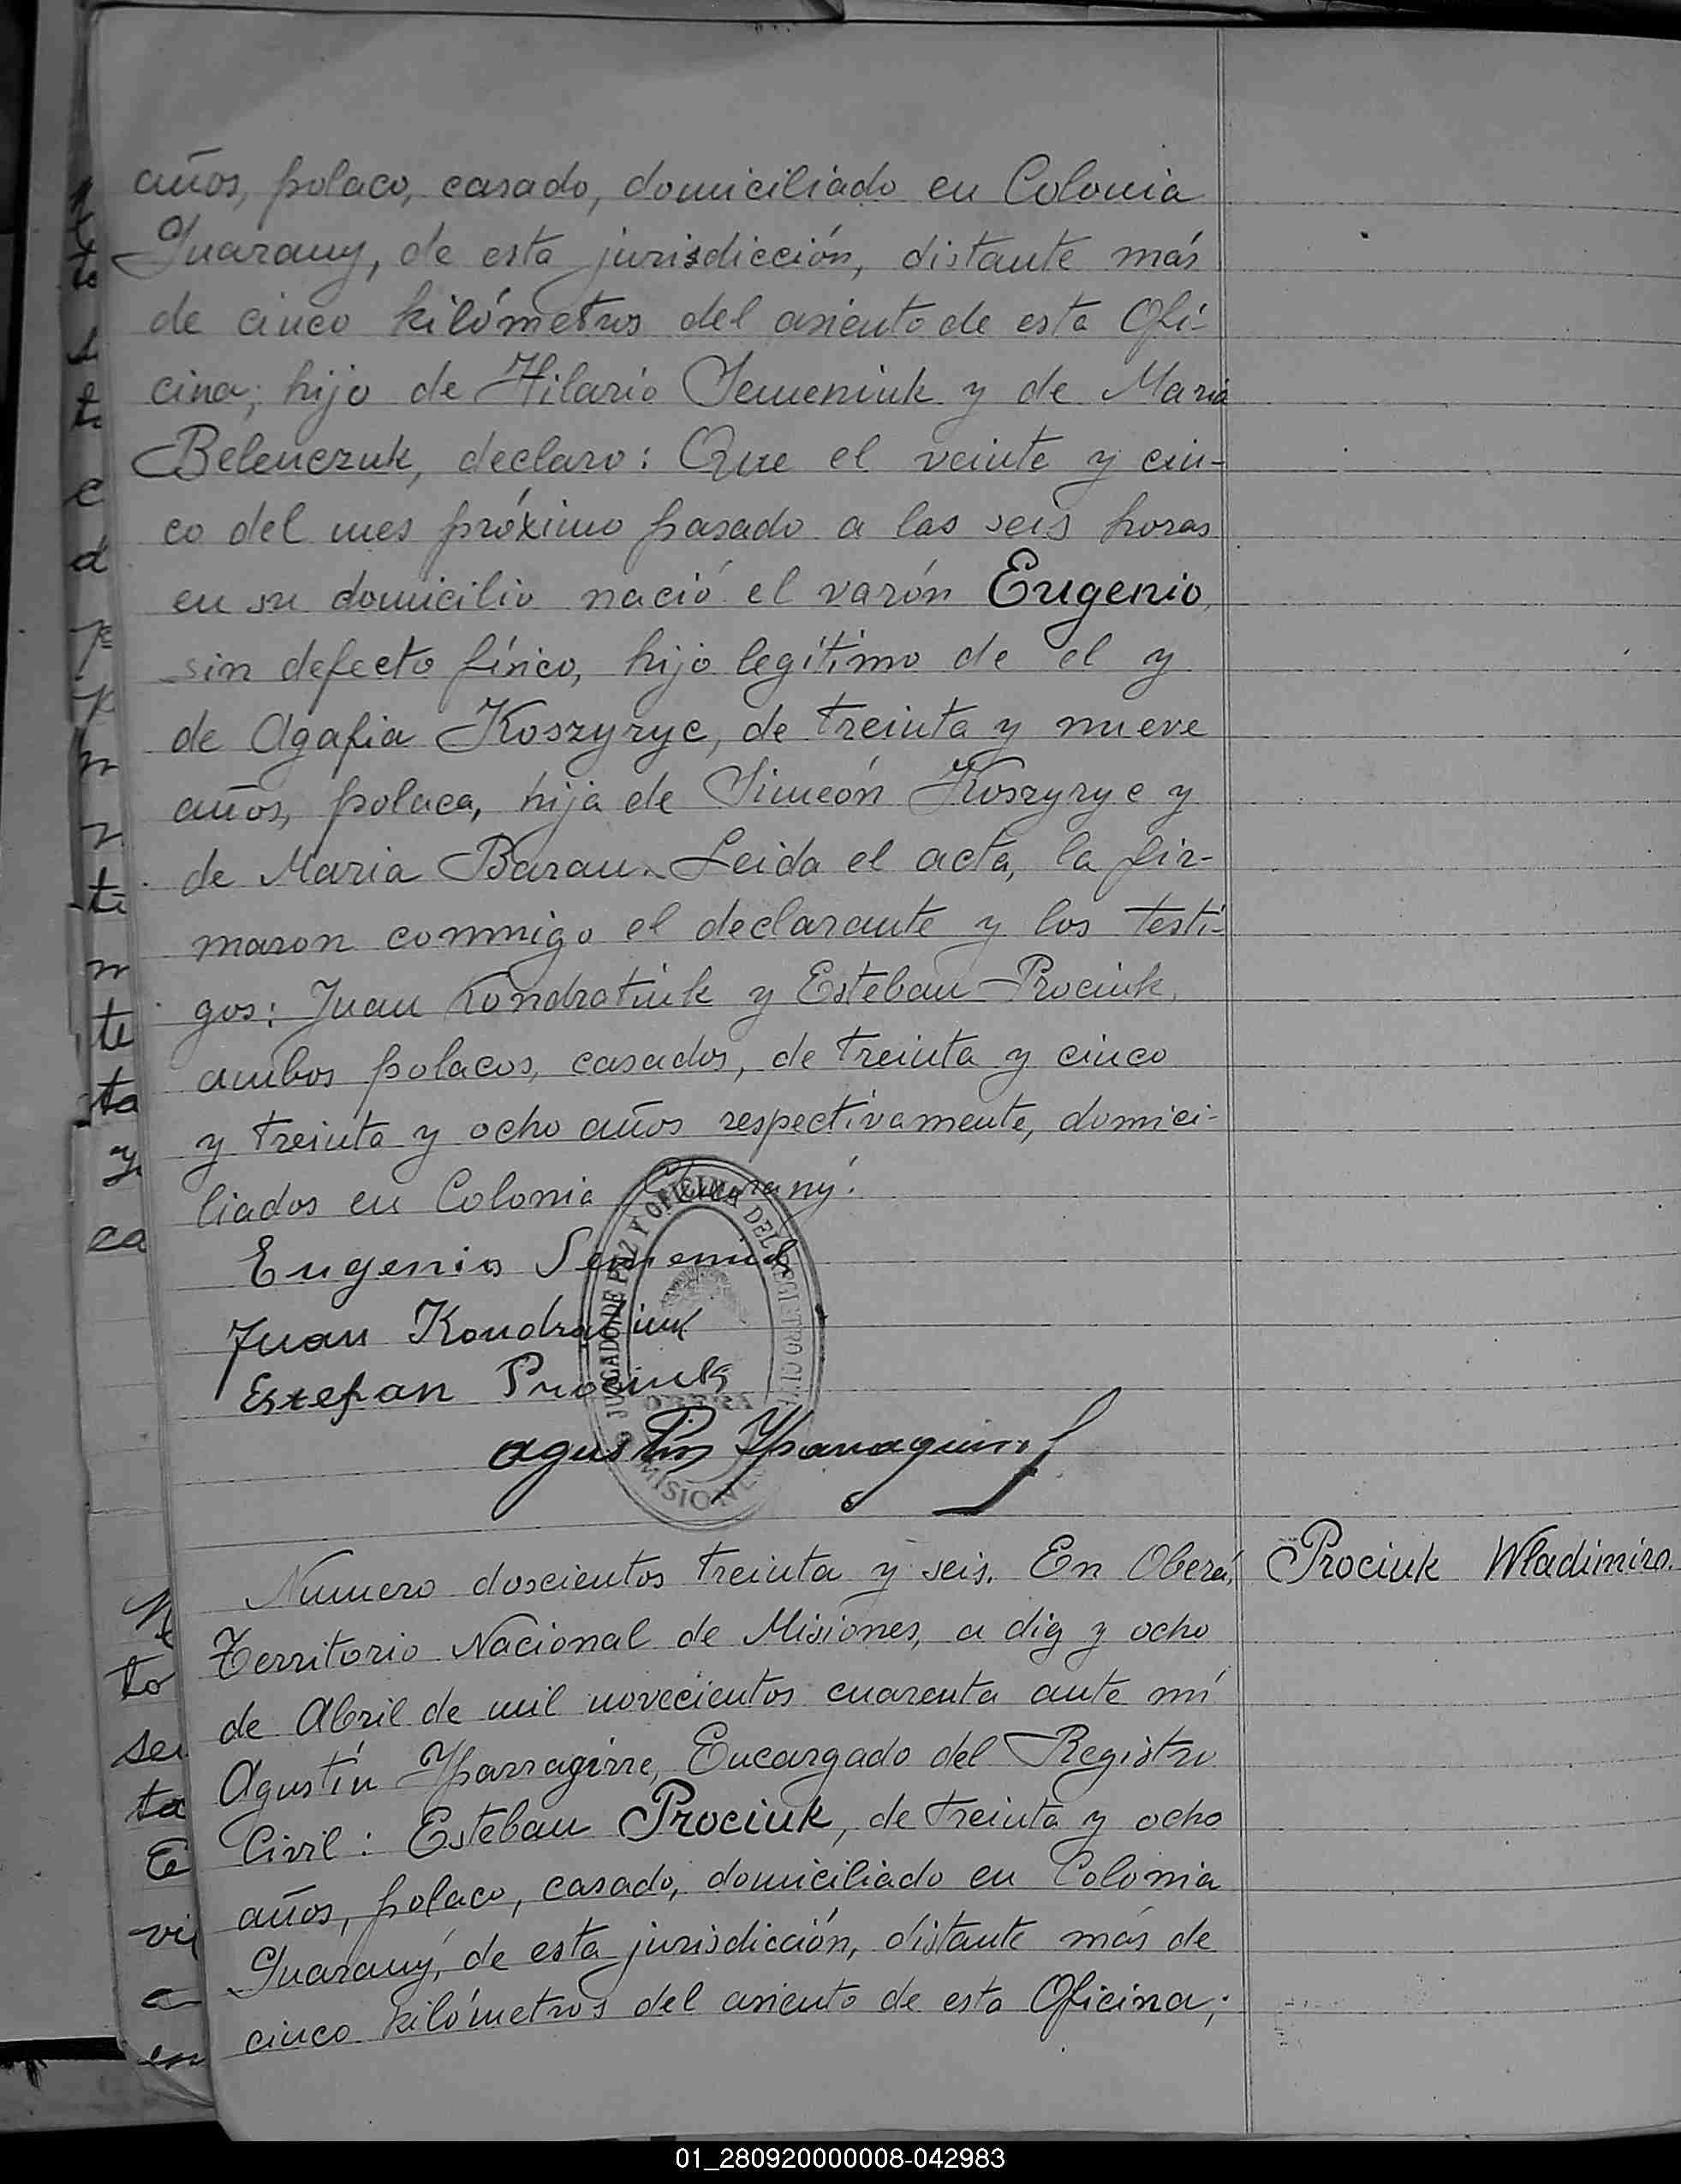 años, polaco, casado, domiciliado en Colonia
Guarany, de esta jurisdicción, distante más
de cinco kilómetros del asiento de esta Ofi-
cina; hijo de Hilario Semeniuk y de Maria
Belenczuk, declaro: Que el veinte y cin-
co del mes próximo pasado a las seis horas
en su domicilio nació el varón Eugenio,
sin defecto físico, hijo legítimo de el y
de Agafia Koszyryc, de treinta y nueve
años, polaca, hija de Simeón Koszyryc y
de Maria Baran. Leida el acta, la fir-
maron conmigo el declarante y los testi-
gos: Juan Kondratiuk y Esteban Prociuk,
ambos polacos, casados, de treinta y cinco
y treinta y ocho años respectivamente, domici-
liados en Colonia Guarany.
Eugenio Semeniuk
Juan Kondratiuk
Estefan Prociuk
JUZGADO DE PAZ Y OFICINA DEL REGISTRO CIVIL
OBERA
MISIONES
Agustin Yparraguirre
Numero doscientos treinta y seis. En Oberá,
Prociuk Wladimiro.
Territorio Nacional de Misiones, a diez y ocho
de Abril de mil novecientos cuarenta ante mí
Agustín Yparragirre, Encargado del Registro
Civil: Esteban Prociuk, de treinta y ocho
años, polaco, casado, domiciliado en Colonia
Guarany, de esta jurisdicción, distante más de
cinco kilómetros del asiento de esta Oficina;
01_280920000008-042983